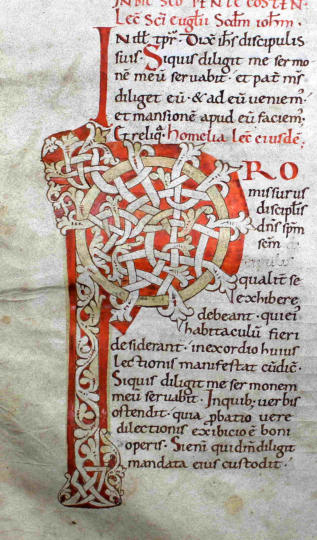 INDIE SCO PENTECOSTEN.
Lec̄ Sc̄i euḡlii Scd̄m ioh̄m.
IN ill̄ tpr̄. Dix̄ ih̄s discipulis
suis. Siquis diligit me sermo
nē meū servabit. et pat̄ m̄s
diliget eū. & ad eū veniem̄.
et mansionē apud eū faciem̄.
Et reliq̄. Homelia lec̄ eiusdē.
PRO
missurus
disciplīs
dn̄s sp̄m
sc̄m
qualit̄ se
exhibere
debeant. qui ei
habitaculū fieri
desiderant. in exordio huius
lectionis manifestat cū dic̄.
Siquis diligit me sermonem
meū servabit. In quib; verbis
ostendit. quia ꝓbatio vere
dilectionis exibicio ē boni
operis. Si enī quid m̄ diligit
mandata eius custodit.